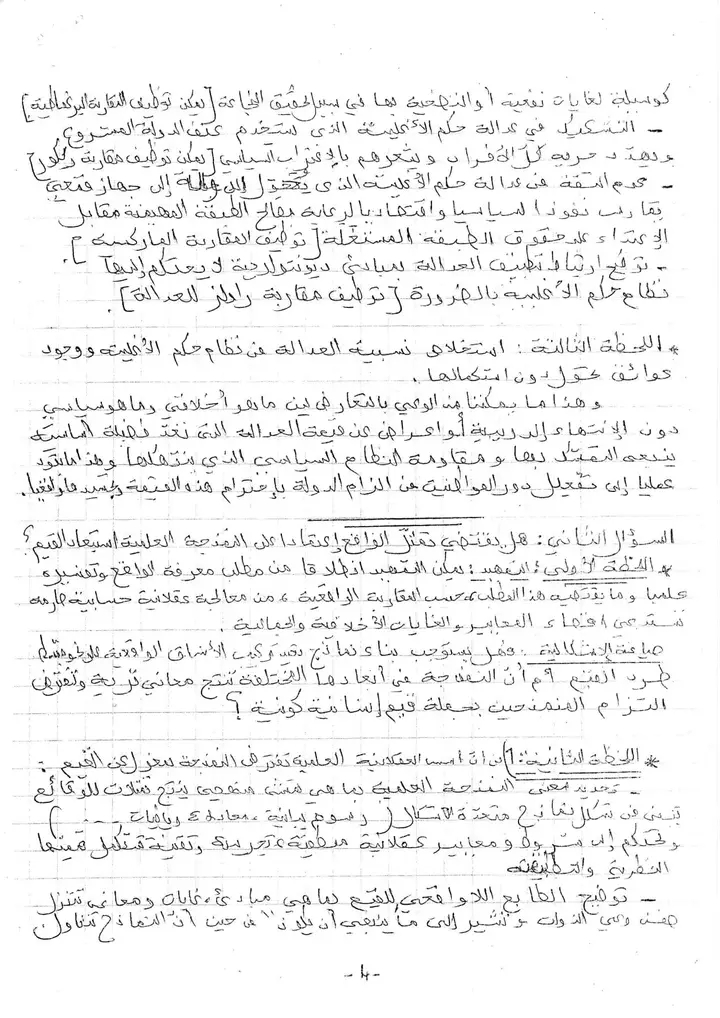 كوسيلة لغايات نفعية أو التضحية بها في سبيل تحقيق النجاعة [يمكن توظيف المقاربة البرغماطية]
- التشكيك في عدالة حكم الأغلبية الذي يستخدم عنف الدولة المشروع
ويهدد حرية كل الأفراد ويشعرهم بالاغتراب السياسي [يمكن توظيف مقاربة ريكور]
- عدم الثقة في عدالة حكم الأغلبية الذي يتحول إلى جهاز قمعي
يمارس نفوذا سياسيا واقتصاديا لرعاية مصالح الطبقة المهيمنة مقابل
الإعتداء على حقوق الطبقة المستغلة [توظيف المقاربة الماركسية].
- توضيح ارتباط تطبيق العدالة بمبادئ ديونتولوجية لا يحتكم إليها
نظام حكم الأغلبية بالضرورة [توظيف مقاربة راولز للعدالة].
* اللحظة الثالثة: استخلاص نسبية العدالة في نظام حكم الأغلبية ووجود
عوائق تحول دون استكمالها.
وهذا ما يمكننا من الوعي بالتعارض بين ما هو أخلاقي وما هو سياسي
دون الإنتهاء إلى ريبية أو إعراض عن قيمة العدالة التي تعد فضيلة أساسية
ينبغي التمسك بها و مقاومة النظام السياسي الذي ينتهكها وهذا ما يقود
عمليا إلى تفعيل دور المواطنين في إلزام الدولة بإحترام هذه القيمة وتجسيدها واقعيا.
السؤال الثاني: هل يقتضي تمثل الواقع إعتمادا على النمذجة العلمية استبعاد القيم؟
* اللحظة الأولى: التمهيد: يمكن التمهيد انطلاقا من مطلب معرفة الواقع وتفسيره
علميا وما يقتضيه هذا المطلب، حسب المقاربة الواقعية، من معالجة عقلانية حسابية صارمة
تستدعي إقصاء المعايير والغايات الأخلاقية والجمالية.
صياغة الإشكالية: فهل يستوجب بناء نماذج بغير تركيب الأنساق الواقعية على نحو مبسط
طرد القيم؟ أم أن النمذجة في أبعادها المختلفة تنتج معاني ثرية وتفترض
التزام المنمذجين بجملة قيم إنسانية كونية؟
* اللحظة الثانية: 1) في أن أسس العقلانية العلمية تفترض النمذجة بمعزل عن القيم:
- تحديد معنى النمذجة العلمية بما هي تمشي منهجي ينتج تمثلات للوقائع
تبنى في شكل نماذج متعددة الأشكال (رسوم بيانية، معادلات رياضيات ....)
وتحتكم إلى شروط و معايير عقلانية منطقية وتجريبية وتقنية تشكل قيمتها
النظرية والتطبيقية
- توضيح الطابع اللاواقعي للقيم بما هي مبادئ، غايات ومعاني تتنزل
ضمن وعي الذوات و تشير إلى "ما ينبغي أن يكون" في حين أن النماذج تتناول
- 4 -